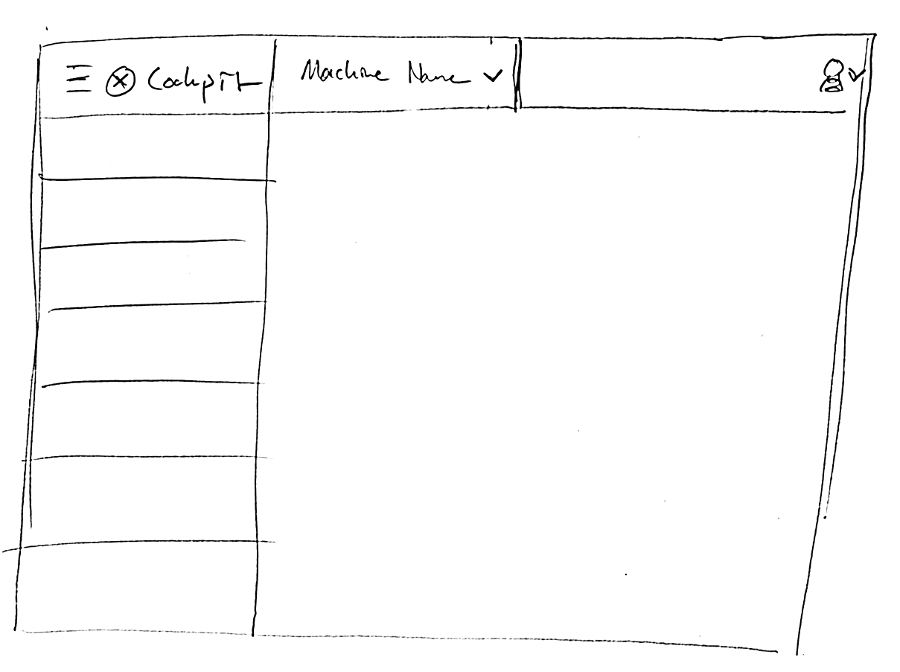 Cockpit
Machine Name